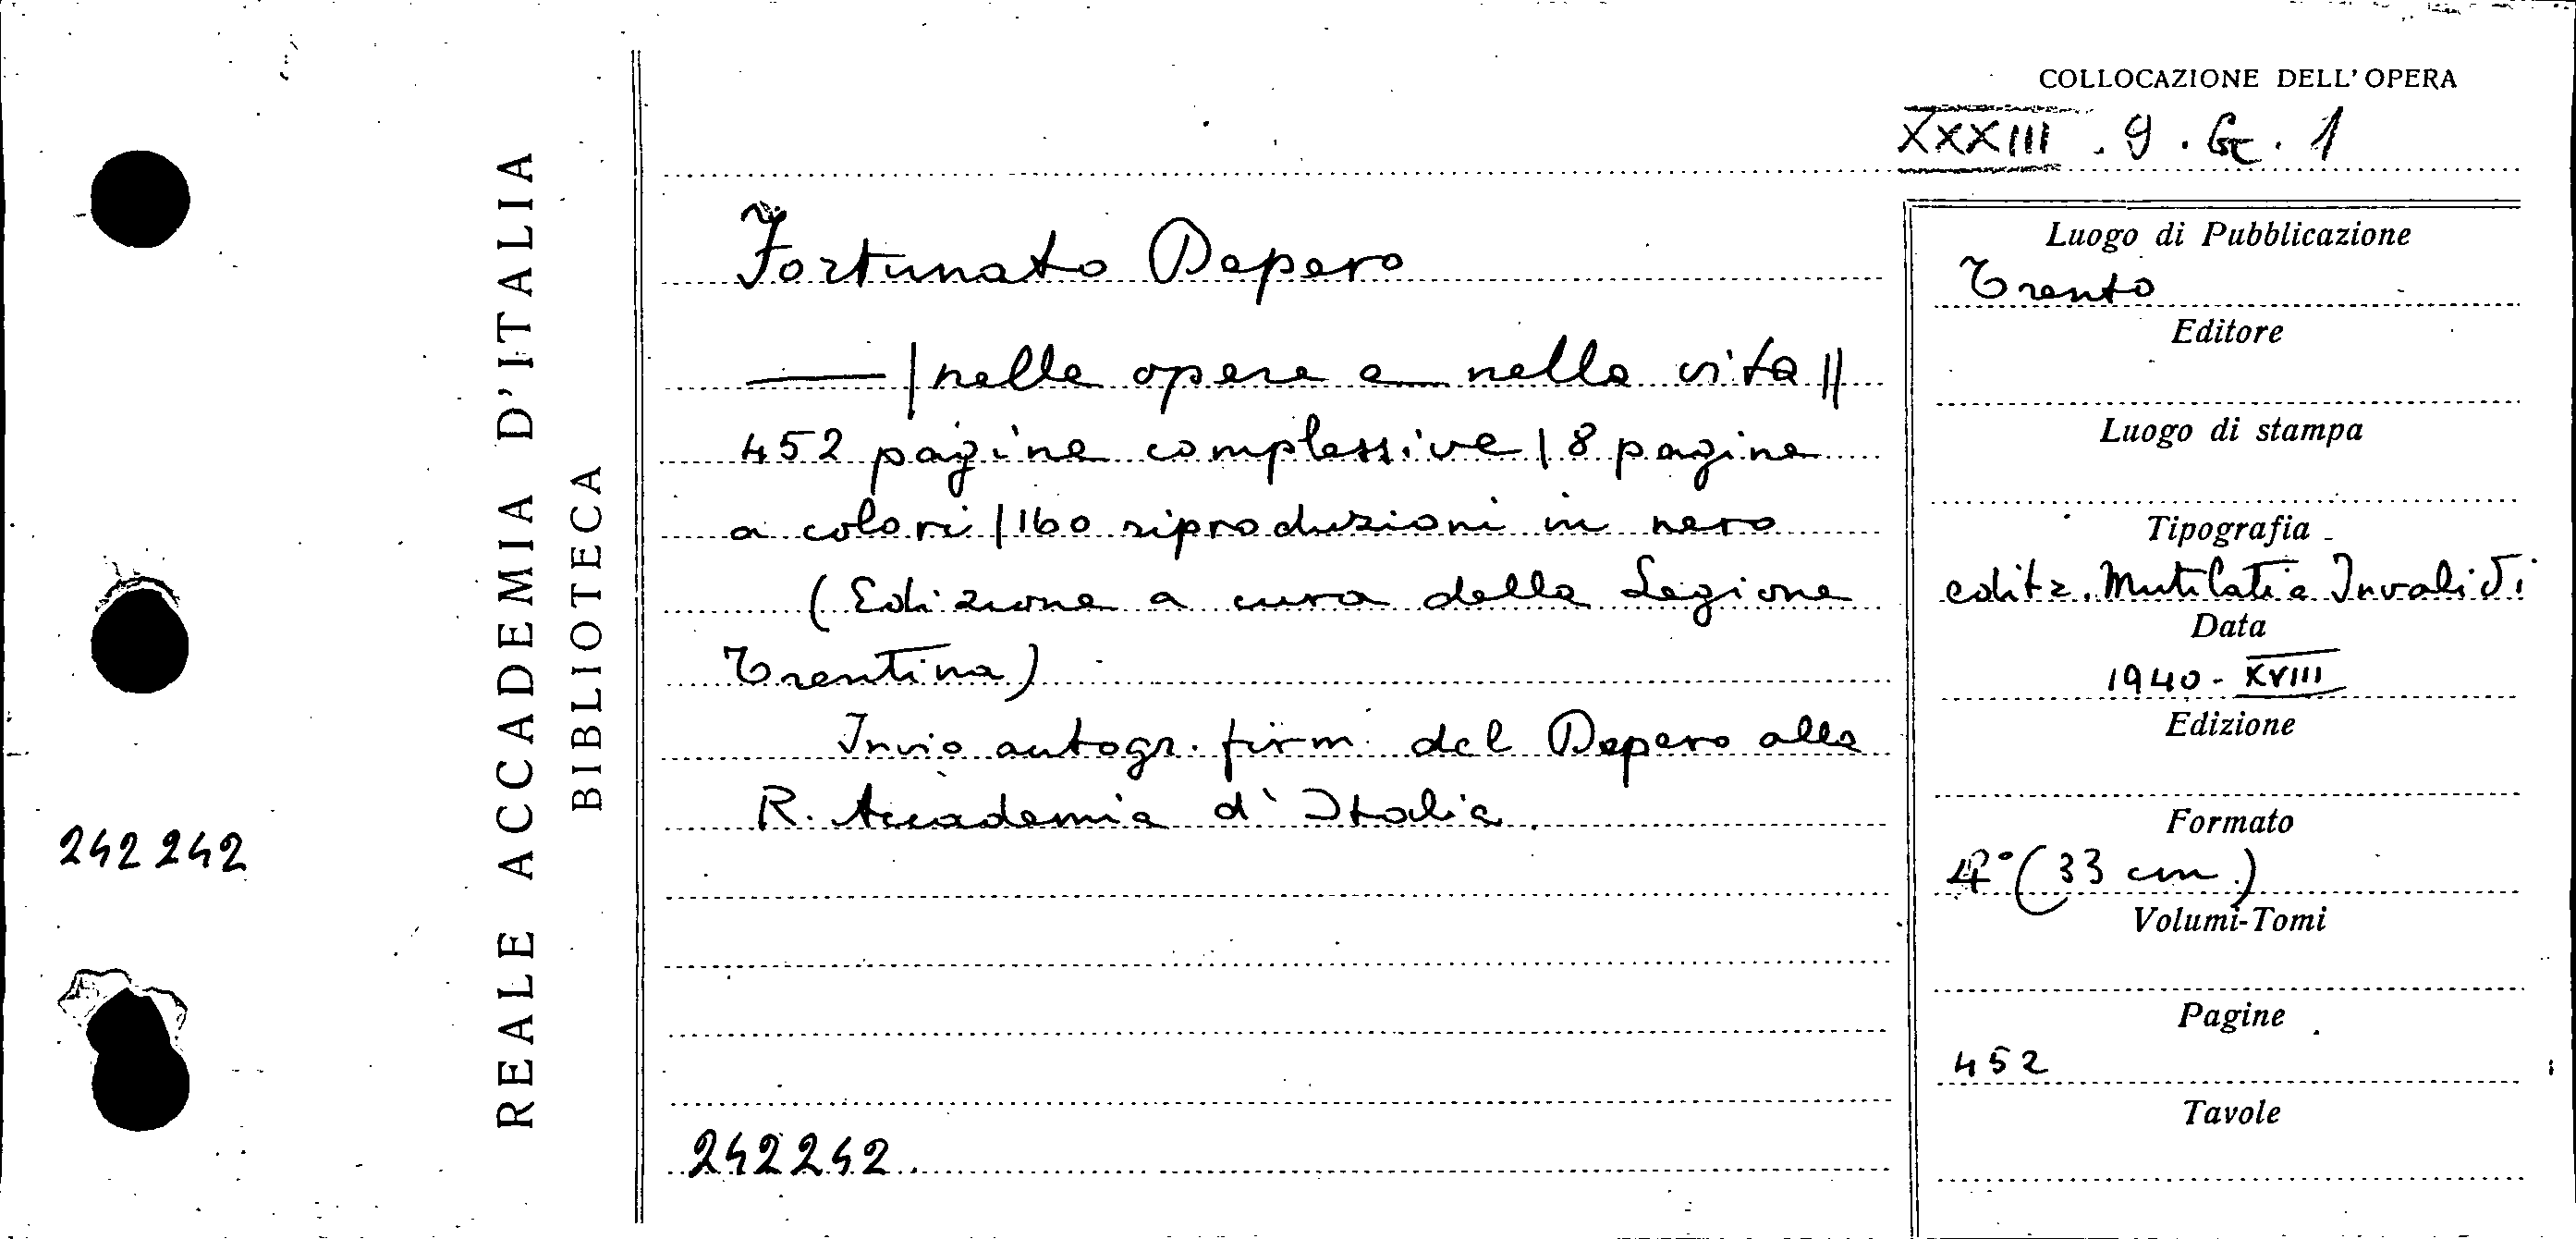 COLLOCAZIONE DELL'OPERA
XXXIII . 9 . G . 1
REALE ACCADEMIA D'ITALIA
BIBLIOTECA
242242
Fortunato Depero
—— | nelle opere e nella vita ||
452 pagine complessive | 8 pagine
a colori | 160 riproduzioni in nero
(Edizione a cura della Legione
Trentina)
Invio autogr. firm. del Depero alla
R. Accademia d'Italia.
242242.
Luogo di Pubblicazione
Trento
Editore
Luogo di stampa
Tipografia
editr. Mutilati e Invalidi
Data
1940 - XVIII
Edizione
Formato
4° (33 cm.)
Volumi-Tomi
Pagine
452
Tavole